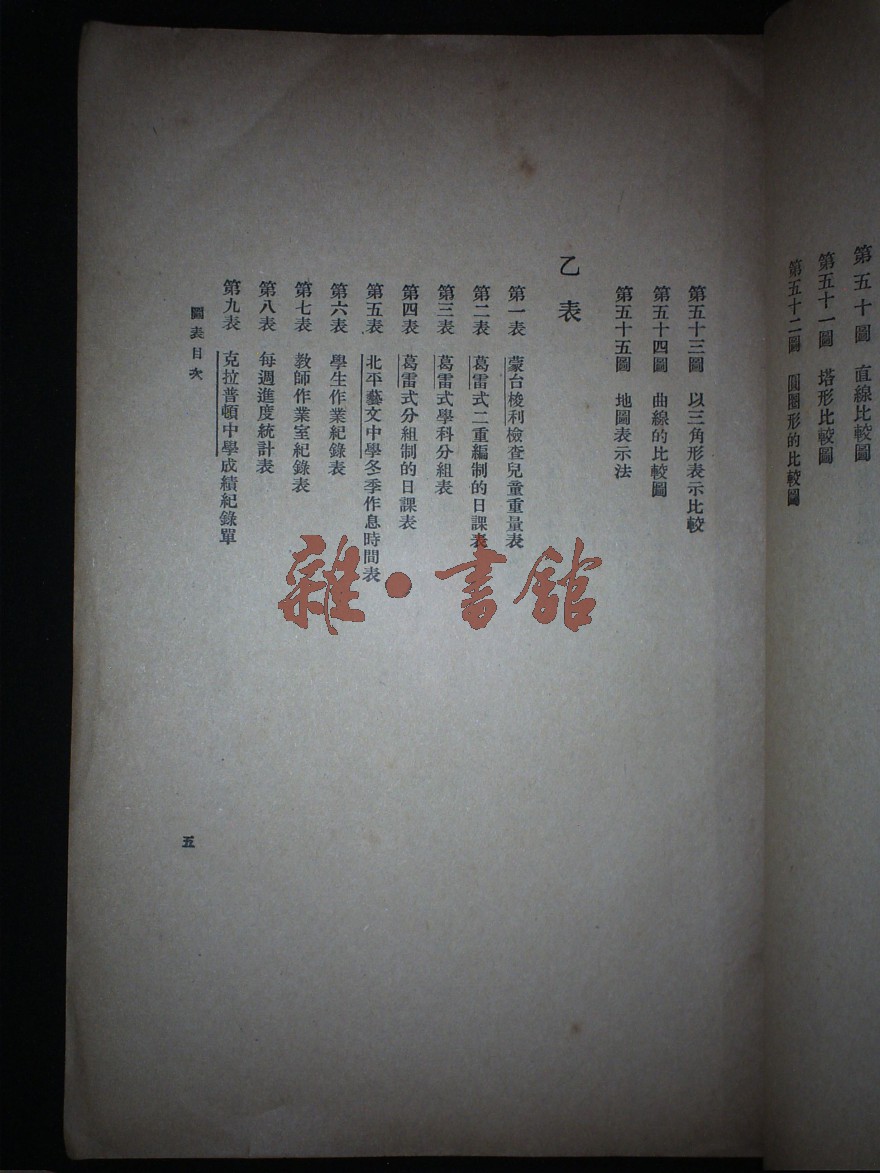 第五十圖　直線比較圖
第五十一圖　塔形比較圖
第五十二圖　圓圈形的比較圖
第五十三圖　以三角形表示比較
第五十四圖　曲線的比較圖
第五十五圖　地圖表示法
乙　表
第一表　蒙台梭利檢查兒童重量表
第二表　葛雷式二重編制的日課表
第三表　葛雷式學科分組表
第四表　葛雷式分組制的日課表
第五表　北平藝文中學冬季作息時間表
第六表　學生作業紀錄表
第七表　教師作業室紀錄表
第八表　每週進度統計表
第九表　克拉普頓中學成績紀錄單
圖表目次
五
雜·書館